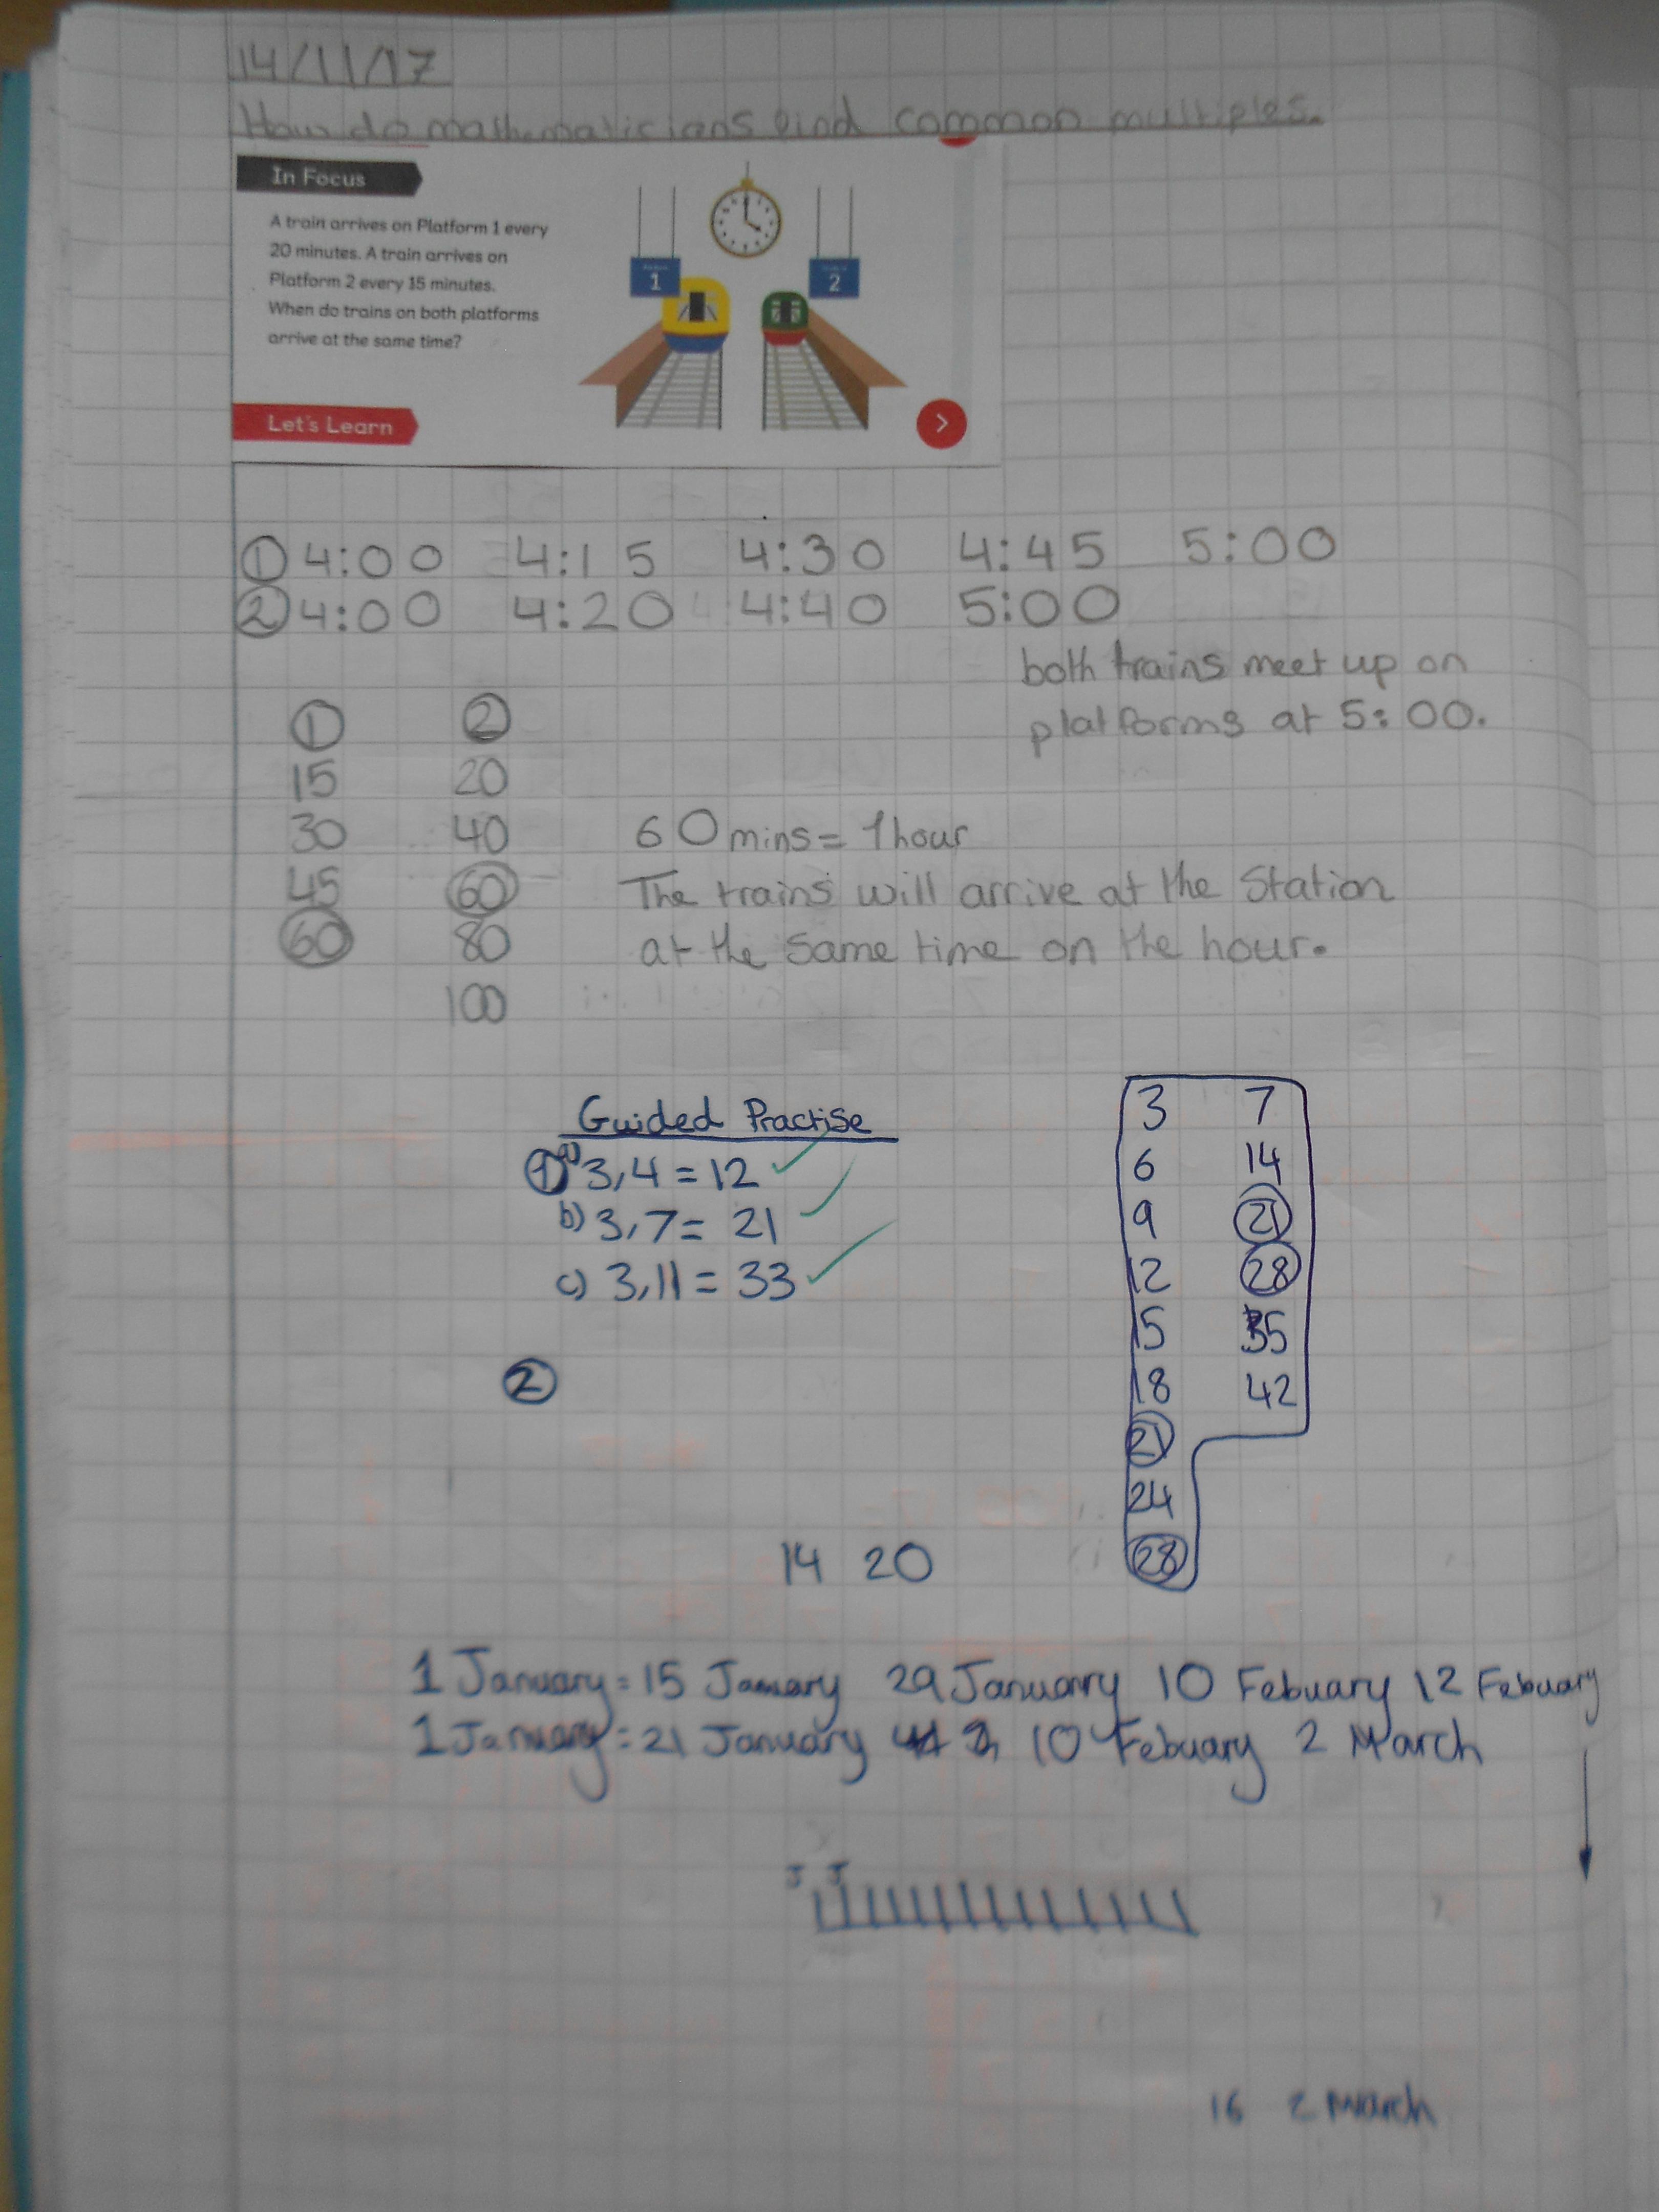 14/11/17
How do mathematicians find common multiples.
In Focus
A train arrives on Platform 1 every
20 minutes. A train arrives on
Platform 2 every 15 minutes.
When do trains on both platforms
arrive at the same time?
1
2
Let's Learn
① 4:00 4:15 4:30 4:45 5:00
② 4:00 4:20 4:40 5:00
both trains meet up on
platforms at 5:00.
① ②
15 20
30 40
45 60
60 80
100
60mins = 1hour
The trains will arrive at the Station
at the same time on the hour.
Guided Practise
① a) 3,4 = 12
b) 3,7 = 21
c) 3,11 = 33
②
3 7
6 14
9 21
12 28
15 35
18 42
21
24
28
14 20
1 January = 15 January 29 January 10 Febuary 12 Febuary
1 January = 21 January 10 Febuary 2 March
J J
16 2 March